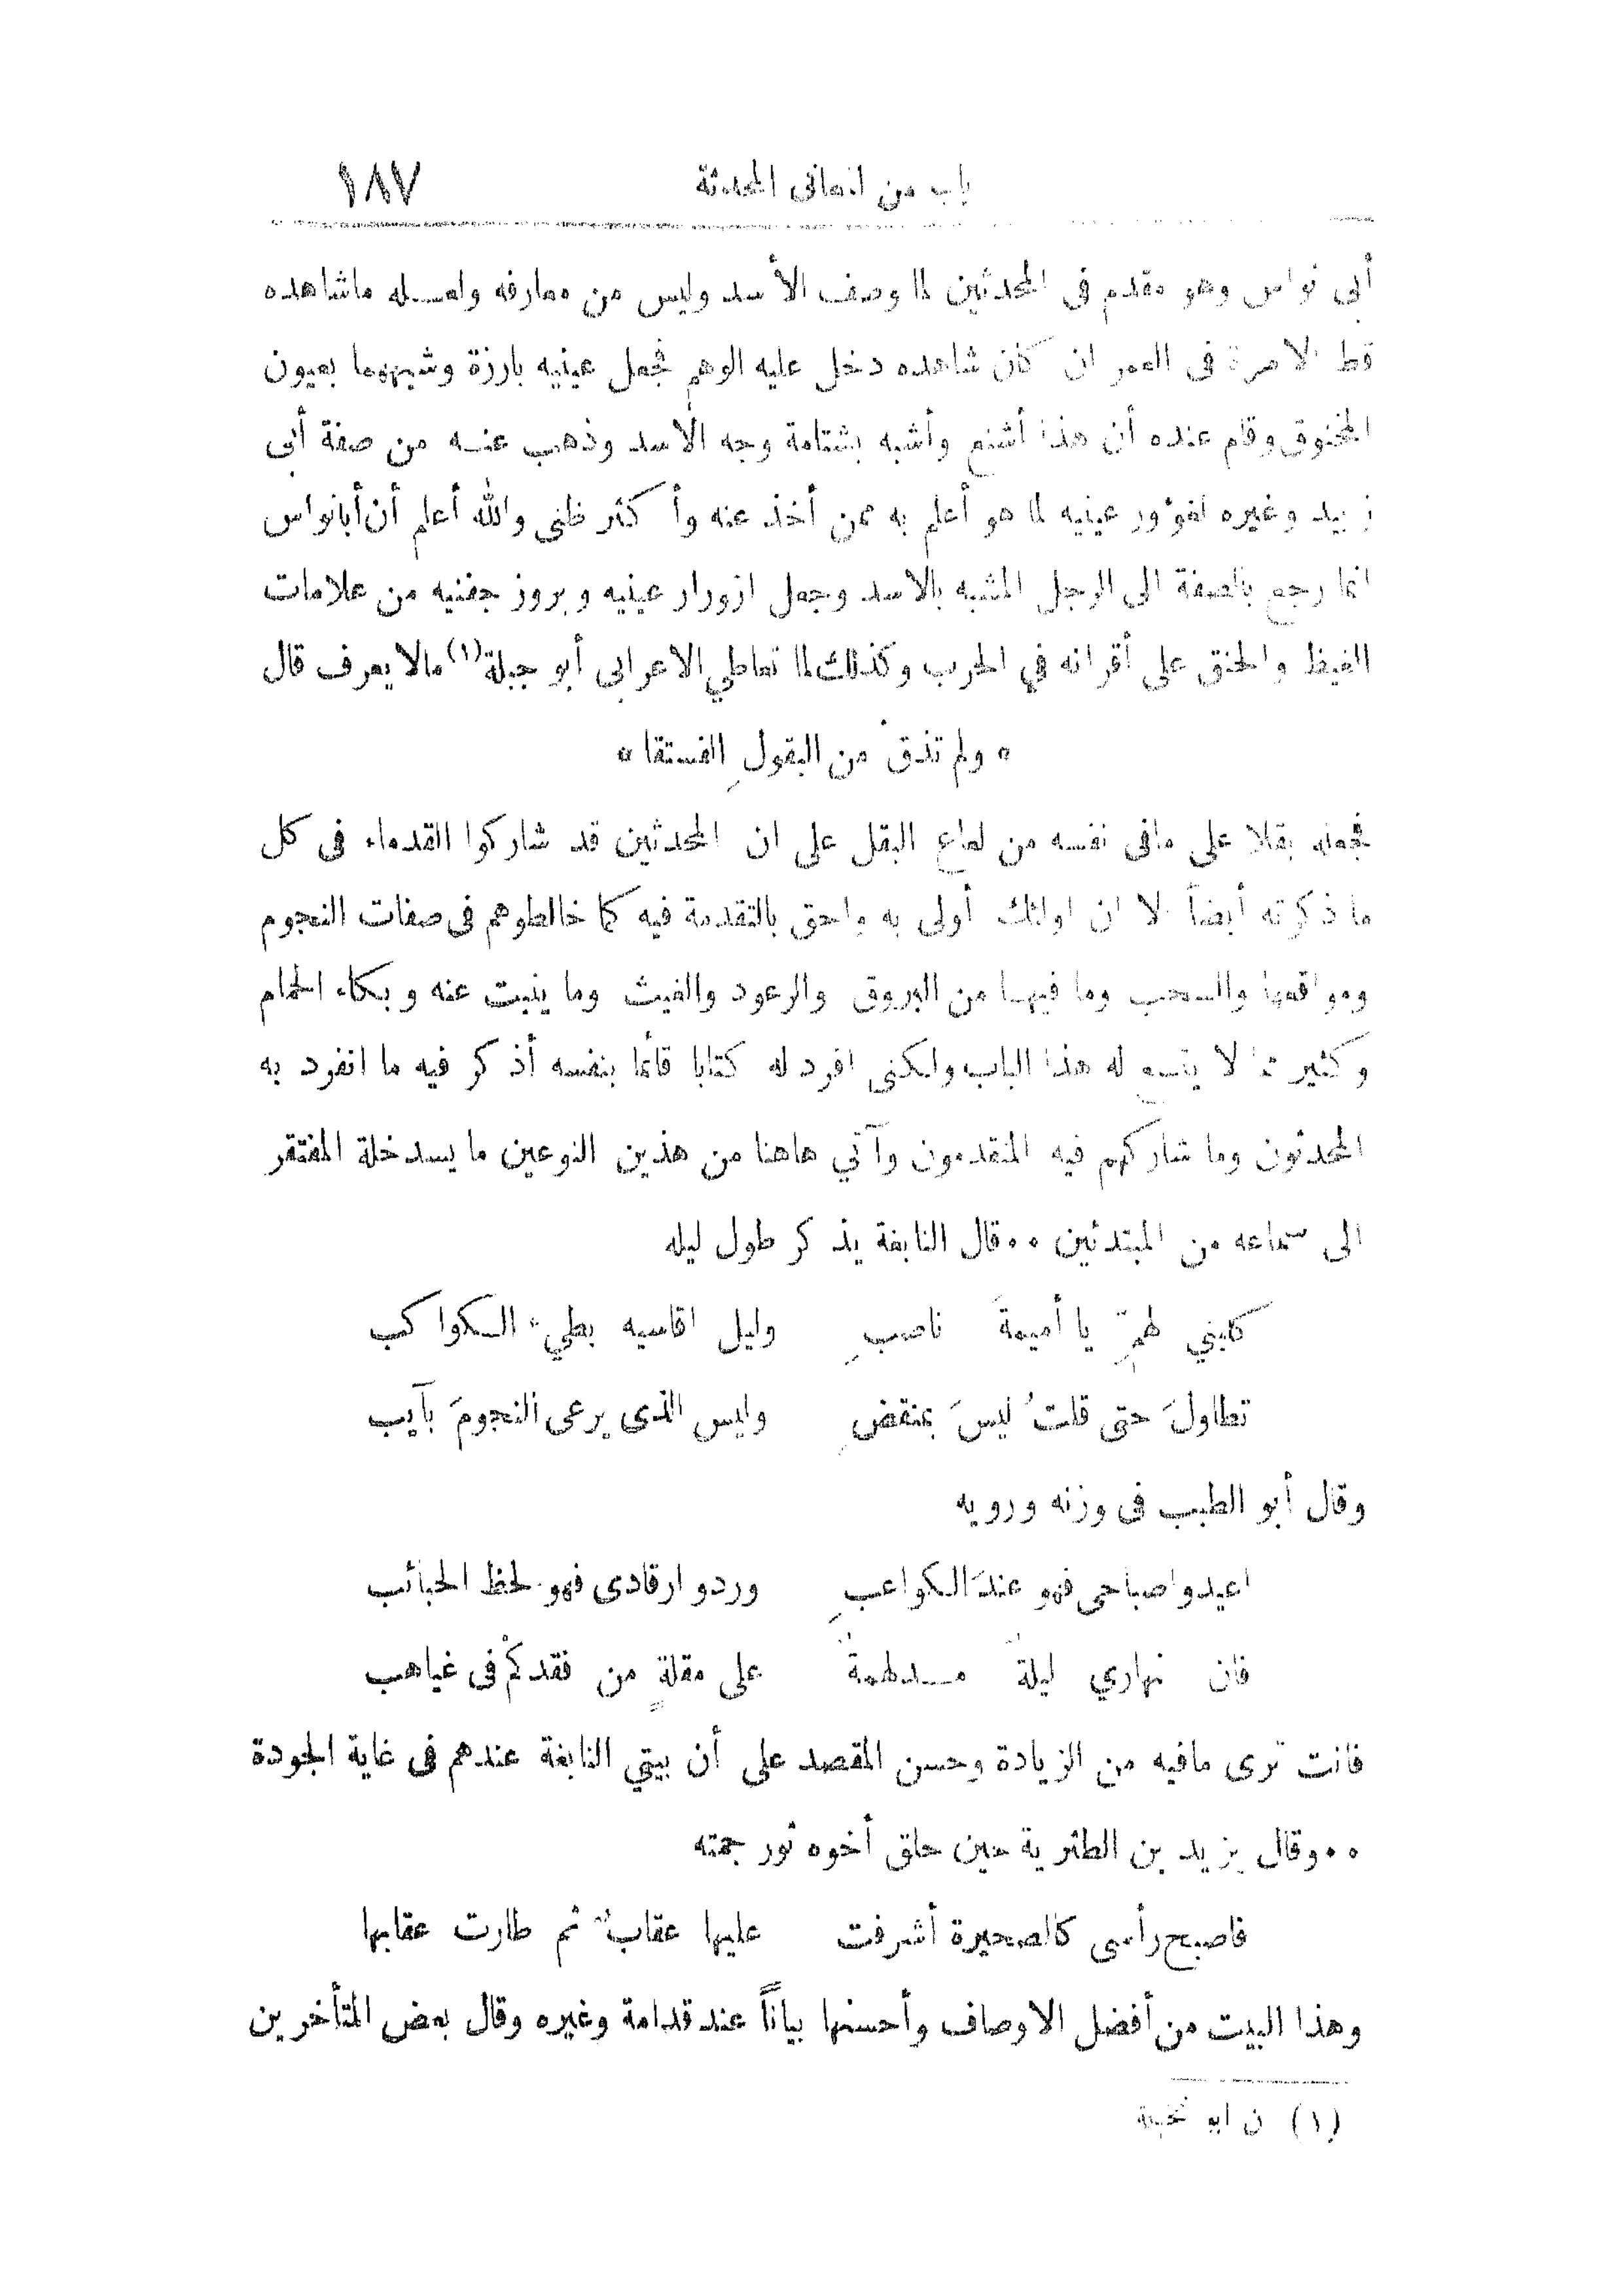 باب من المعانى المحدثة ١٨٧
أبى نواس وهو مقدم فى المحدثين لما وصف الأسد وليس من معارفه ولعله ماشاهده
قط الا مرة فى العمر ان كان شاهده دخل عليه الوهم فجعل عينيه بارزة وشبههما بعيون
المخنوق وقام عنده أن هذا أشنع وأشبه بشتامة وجه الأسد وذهب عنه من صفة أبى
زبيد وغيره لغؤور عينيه لما هو أعلم به ممن أخذ عنه وأكثر ظنى والله أعلم أن أبانواس
انما رجع بالصفة الى الرجل المشبه بالاسد وجعل ازورار عينيه وبروز جفنيه من علامات
الغيظ والحنق على أقرانه في الحرب وكذلك لما تعاطي الاعرابى أبو جبلة (١) مالا يعرف قال
* ولم تذق من البقولِ الفستقا *
فجعله بقلا على مافى نفسه من لعاع البقل على ان المحدثين قد شاركوا القدماء فى كل
ما ذكرته أيضاً الا ان اولئك أولى به واحق بالتقدمة فيه كما خالطوهم فى صفات النجوم
ومواقعها والسحب وما فيها من البروق والرعود والغيث وما ينبت عنه وبكاء الحمام
وكثير مما لا يتسع له هذا الباب ولكنى افرد له كتابا قائما بنفسه أذكر فيه ما انفرد به
المحدثون وما شاركهم فيه المتقدمون وآتي هاهنا من هذين النوعين ما يسد خلة المفتقر
الى سماعه من المبتدئين ٠٠ قال النابغة يذكر طول ليله
كليني لهمٍّ يا أميمةَ ناصبِ وليل اقاسيه بطيء الكواكب
تطاولَ حتى قلتُ ليسَ بمنقضٍ وليس الذى يرعى النجومَ بآيب
وقال أبو الطيب فى وزنه ورويه
اعيدوا صباحى فهو عندَ الكواعبِ وردوا رقادى فهو لحظ الحبائب
فان نهاري ليلةٌ مدلهمةٌ على مقلةٍ من فقدكمْ فى غياهب
فانت ترى مافيه من الزيادة وحسن المقصد على أن بيتي النابغة عندهم فى غاية الجودة
٠٠ وقال يزيد بن الطثرية حين حلق أخوه ثور جمته
فاصبح رأسى كالصحيرة أشرفت عليها عقابٌ ثم طارت عقابها
وهذا البيت من أفضل الاوصاف وأحسنها بياناً عند قدامة وغيره وقال بعض المتأخرين
(١) ن ابو نخيلة